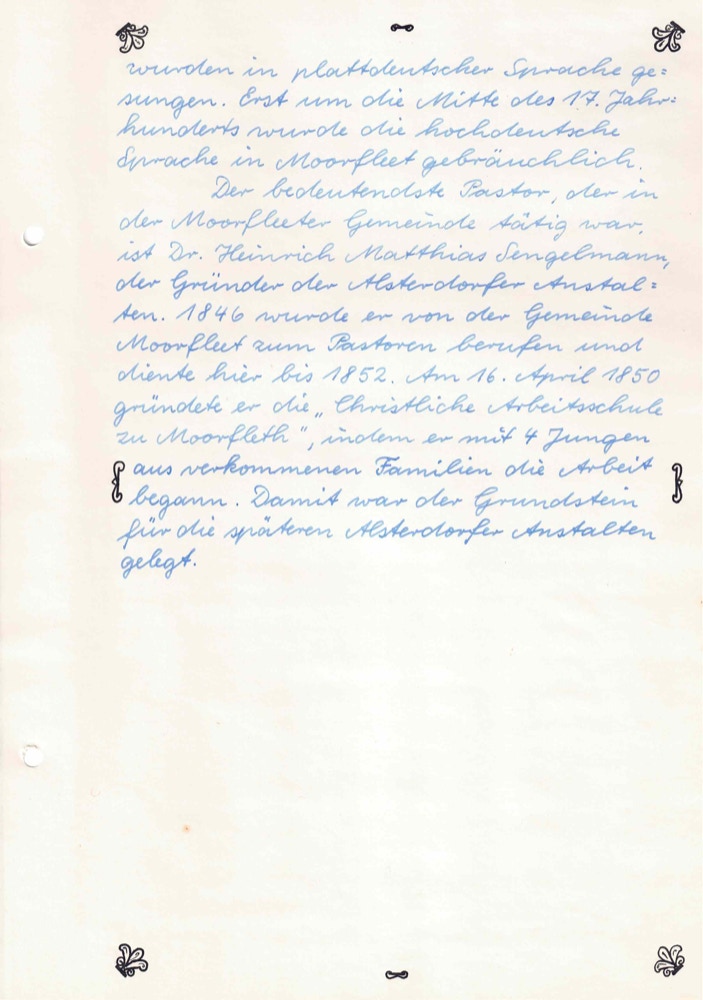 wurden in plattdeutscher Sprache ge=
sungen. Erst um die Mitte des 17. Jahr=
hunderts wurde die hochdeutsche
Sprache in Moorfleet gebräuchlich.
Der bedeutendste Pastor, der in
der Moorfleeter Gemeinde tätig war,
ist Dr. Heinrich Matthias Sengelmann,
der Gründer der Alsterdorfer Anstal=
ten. 1846 wurde er von der Gemeinde
Moorfleet zum Pastoren berufen und
diente hier bis 1852. Am 16. April 1850
gründete er die „Christliche Arbeitsschule
zu Moorfleth", indem er mit 4 Jungen
aus verkommenen Familien die Arbeit
begann. Damit war der Grundstein
für die späteren Alsterdorfer Anstalten
gelegt.